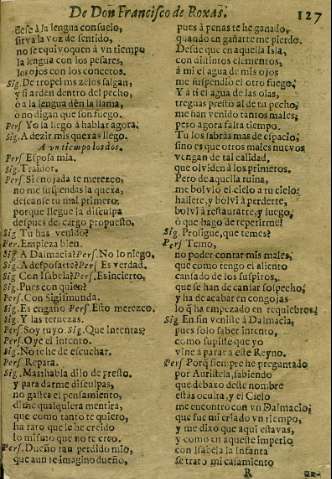 De Don Francisco de Roxas. 127
Cesse à la lengua consuelo,
sirva la voz de sentido,
no se equivoquen à vn tiempo
la lengua con los pesares,
los ojos con los concetos.
Sig. De tropel mis zelos salgan,
y si arden dentro del pecho,
ò a la lengua dèn la llama,
ò no digan que son fuego.
Pers. Yo la llego à hablar agora.
Sig. A dezir mis quexas llego.
A vn tiempo los dos.
Pers. Esposa mia.
Sig. Traidor.
Pers. Si enojada te merezco,
no me suspendas la quexa,
dexeas le tu mal primero,
porque llegue la disculpa
despues de cargo propuesto.
Sig. Tu has venido?
Pers. Empieza bien.
Sig. A Dalmacia? Pers. No lo niego.
Sig. A desposarte? Pers. Es verdad.
Sig. Con Isabela? Pers. Es incierto.
Sig. Pues con quien?
Pers. Con Sigismunda.
Sig. Es engaño Pers. Esso merezco.
Sig. Y las ternezas.
Pers. Soy tuyo. Sig. Que intentas?
Pers. Oye el intento.
Sig. No te he de escuchar.
Pers. Repara.
Sig. Mas habla dilo de presto.
y para darme disculpas,
no gastes el pensamiento,
dime qualquiera mentira,
que como tanto te quiero,
ha rato que le he creido
lo mismo que no te creo.
Pers. Dueño tan perdido mio,
que aun te imagino dueño,
pues à penas te he ganado,
quando en gañarte me pierdo.
Desde que en aquella Isla,
con distintos elementos,
à mi el agua de mis ojos
me suspendio el otro fuego.
Y à ti el agua de las olas,
treguas presto al de tu pecho,
me han venido tantos males,
pero agora falta tiempo.
Tu los sabràs mas de espacio,
sino es que otros males nuevos
vengan de tal calidad,
que olviden à los primeros.
Pero de aquella ruina,
me bolvio el cielo a tu cielo:
hallete, y bolvi à perderte,
bolvi à restaurarte, y luego,
ò que hago de repetirme!
Sig. Prosigue, que temes?
Pers. Temo,
no poder contar mis males,
que como tengo el aliento
cansado de los suspiros,
que se han de cansar sospecho,
y ha de acabar en congojas
lo q̃ ha empezado en requiebros.
Sig. En fin veniste à Dalmacia,
pues solo saber intento,
como supiste que yo
vine à parar a este Reyno.
Pers. Porq̃ siempre he preguntado
por Auristela, sabiendo
que debaxo deste nombre
estàs oculta, y el Cielo
me encontro con vn Dalmacio,
que fue mi criado vn tiempo,
y me dixo que aqui estavas,
y como en aqueste imperio
con Isabela la Infanta
se trato mi casamiento
R